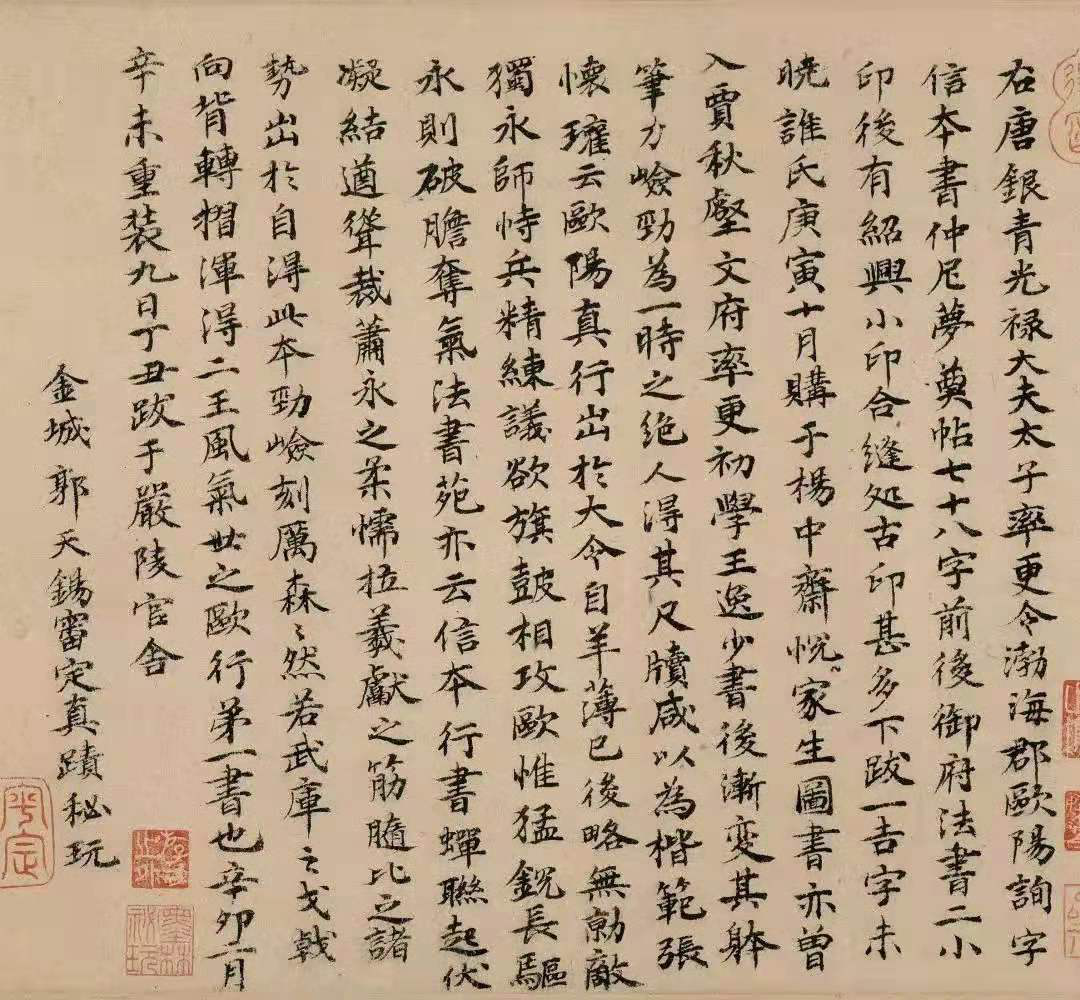 右唐銀青光禄大夫太子率更令渤海郡歐陽詢字
信本書仲尼夢奠帖七十八字前後御府法書二小
印後有紹興小印合縫処古印甚多下跋一吉字未
曉誰氏庚寅十月購于楊中齋悅家生圖書亦曾
入賈秋壑文府率更初學王逸少書後漸變其躰
筆力嶮勁為一時之絶人得其尺牘咸以為楷範張
懷瓘云歐陽真行出於大令自羊薄已後略無勍敵
獨永師恃兵精練議欲旗鼓相攻歐惟猛銳長驅
永則破膽奪氣法書苑亦云信本行書蟬聯起伏
凝結遒聳裁蕭永之柔懦拉羲獻之筋髓比之諸
勢出於自得此本勁嶮刻厲森〻然若武庫之戈戟
向背轉摺渾得二王風氣世之歐行第一書也辛卯二月
辛未重装九日丁丑跋于嚴陵官舍
金城郭天錫審定真蹟秘玩
平定